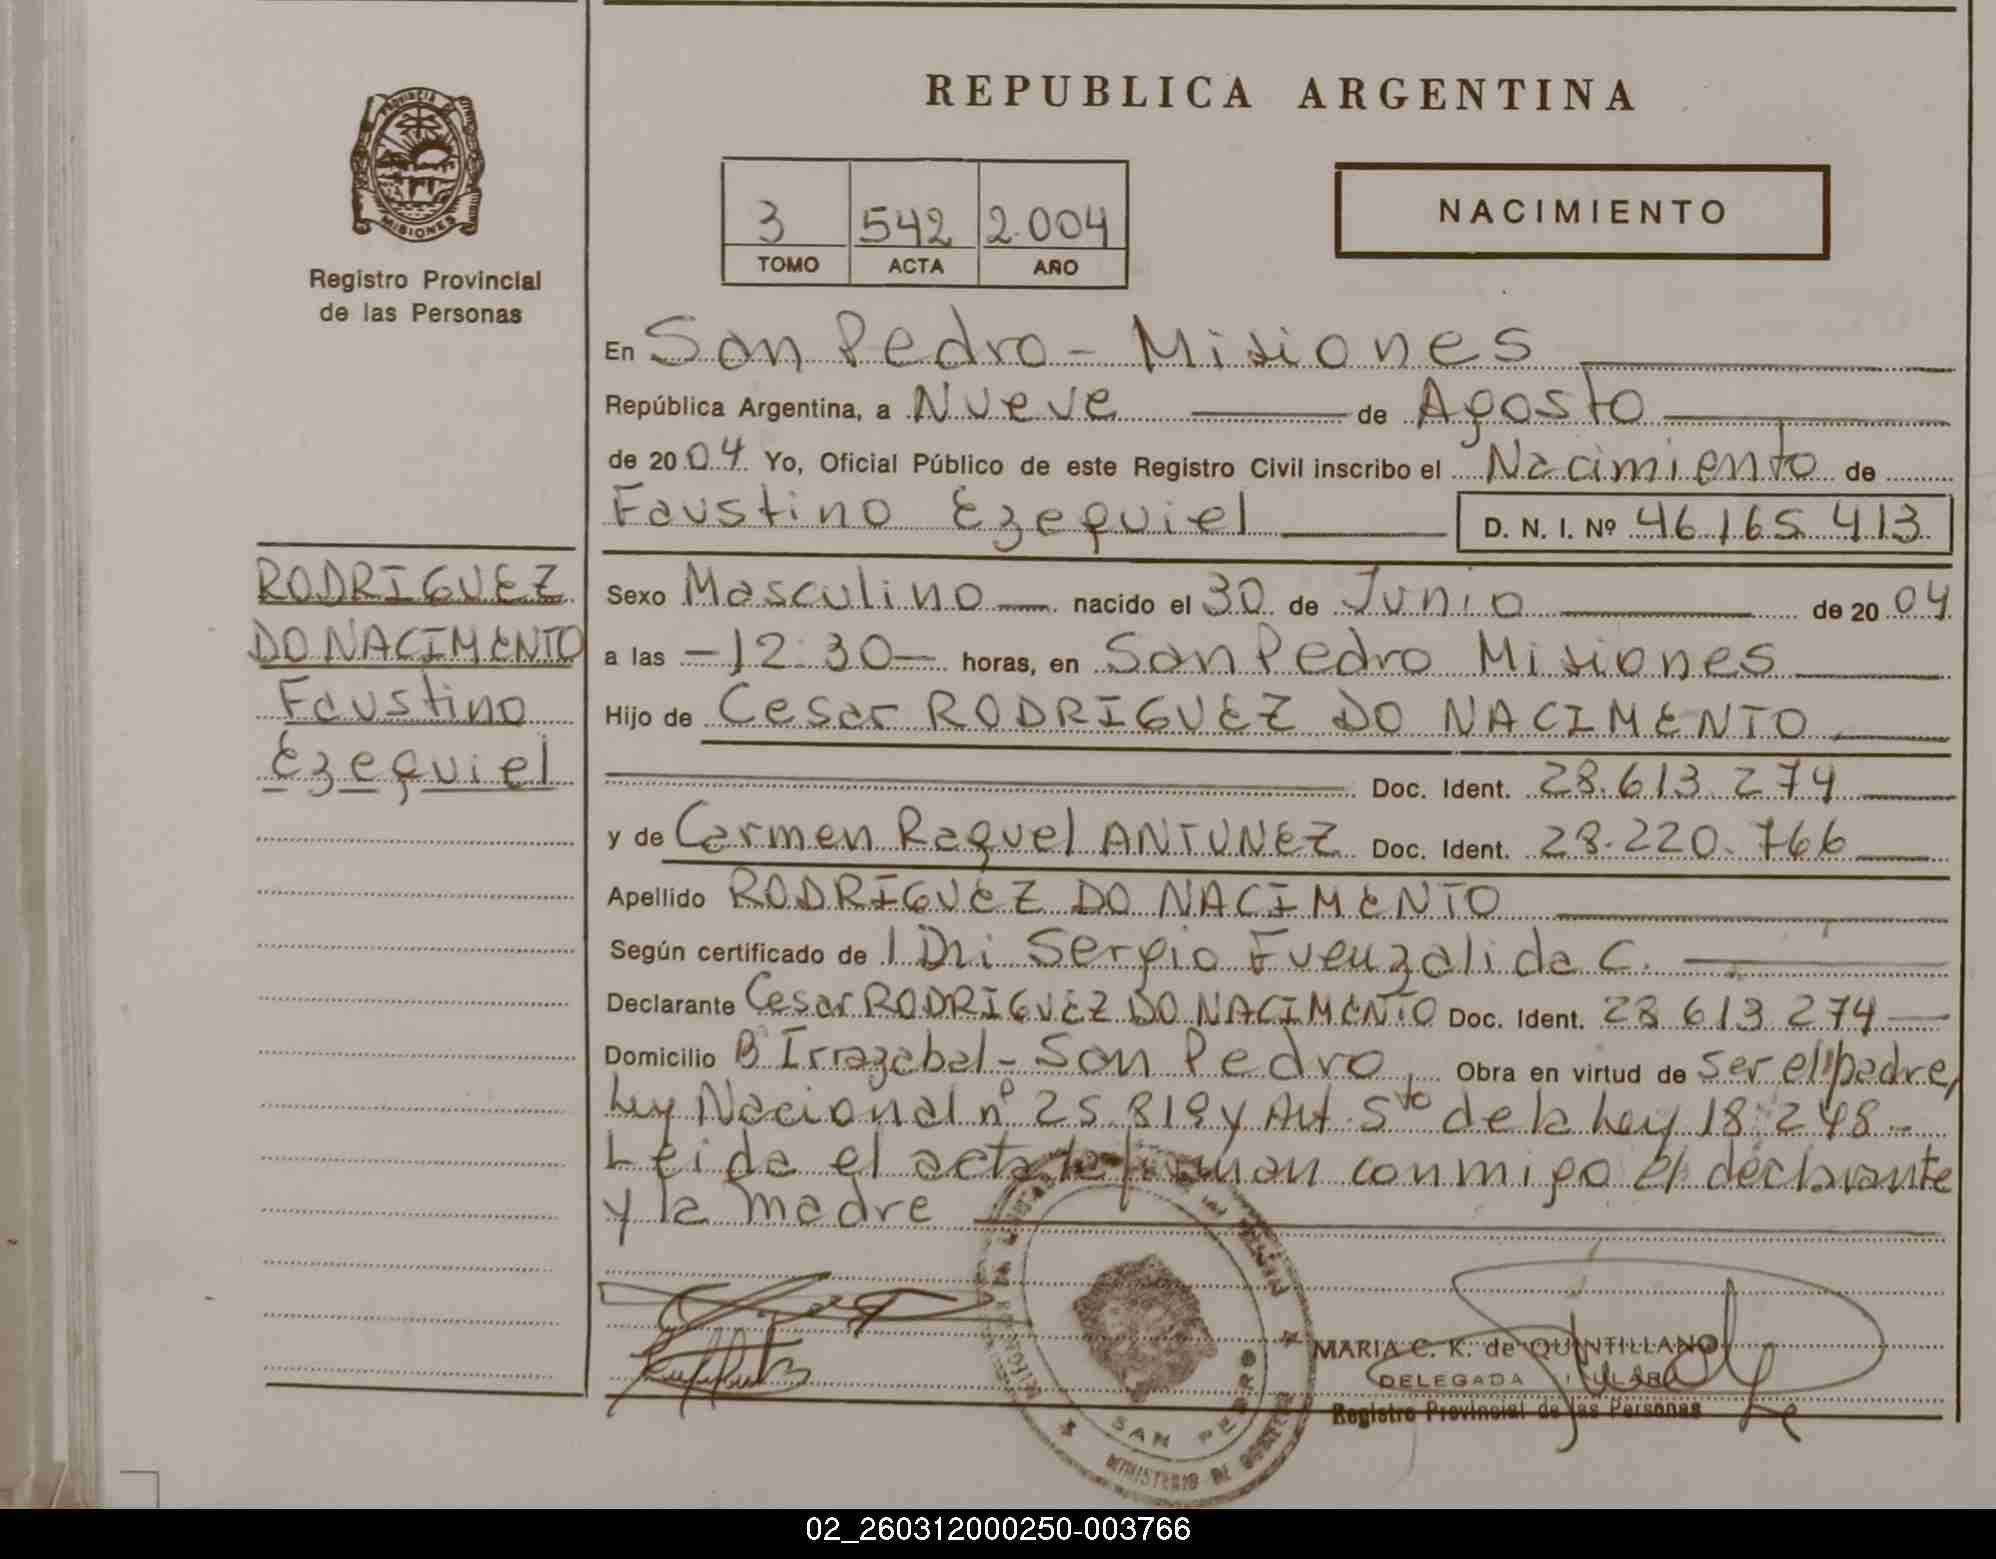 REPUBLICA ARGENTINA
PROVINCIA DE
MISIONES
Registro Provincial
de las Personas
3 542 2.004
TOMO ACTA AÑO
NACIMIENTO
En San Pedro - Misiones
República Argentina, a Nueve de Agosto
de 20 04 Yo, Oficial Público de este Registro Civil inscribo el Nacimiento de
Faustino Ezequiel D. N. I. Nº 46.165.413
RODRIGUEZ
DO NACIMENTO
Faustino
Ezequiel
Sexo Masculino nacido el 30 de Junio de 20 04
a las - 12:30 - horas, en San Pedro Misiones
Hijo de Cesar RODRIGUEZ DO NACIMENTO
Doc. Ident. 28.613.274
y de Carmen Raquel ANTUNEZ Doc. Ident. 28.220.766
Apellido RODRIGUEZ DO NACIMENTO
Según certificado de Sergio Fuenzalida C.
Declarante Cesar RODRIGUEZ DO NACIMENTO Doc. Ident. 28 613 274
Domicilio B Irrazabal - San Pedro, Obra en virtud de ser el padre,
Ley Nacional nº 25.819 y Art. 5to de la Ley 18.248.-
Leida el acta la firman conmigo el declarante
y la madre
MARIA C. K. de QUINTILLANO
DELEGADA TITULAR
Registro Provincial de las Personas
SAN PEDRO
MINISTERIO DE GOBIERNO
02_260312000250-003766